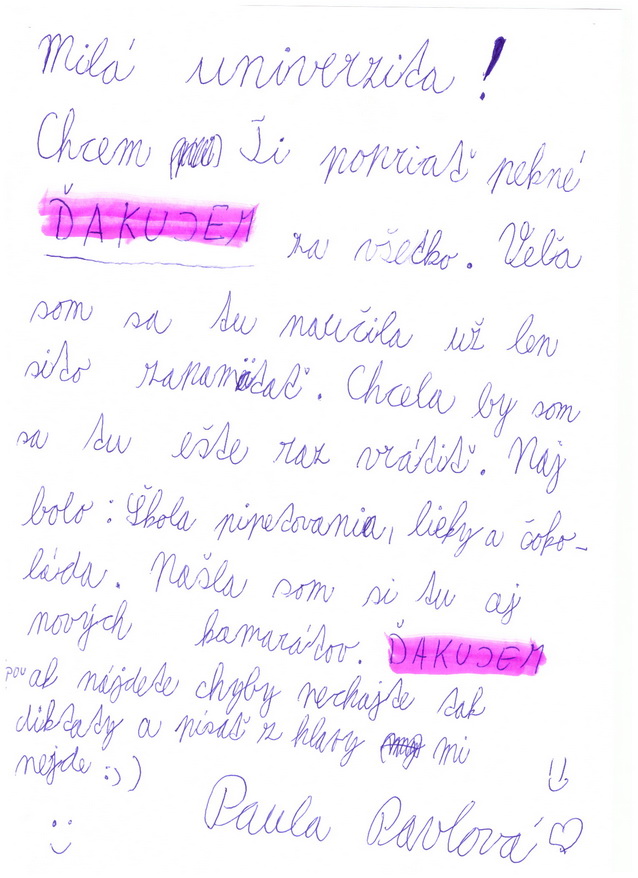 Milá univerzita!
Chcem Ti popriať pekné
ĎAKUJEM za všetko. Veľa
som sa tu naučila už len
sito zapamätať. Chcela by som
sa tu ešte raz vrátiť. Naj
bolo: Škola pipetovania, lieky a čoko-
láda. Našla som si tu aj
nových kamarátov. ĎAKUJEM
ak nájdete chyby nechajte tak
diktáty a písať z hlavy mi
nejde :))
Paula Pavlová